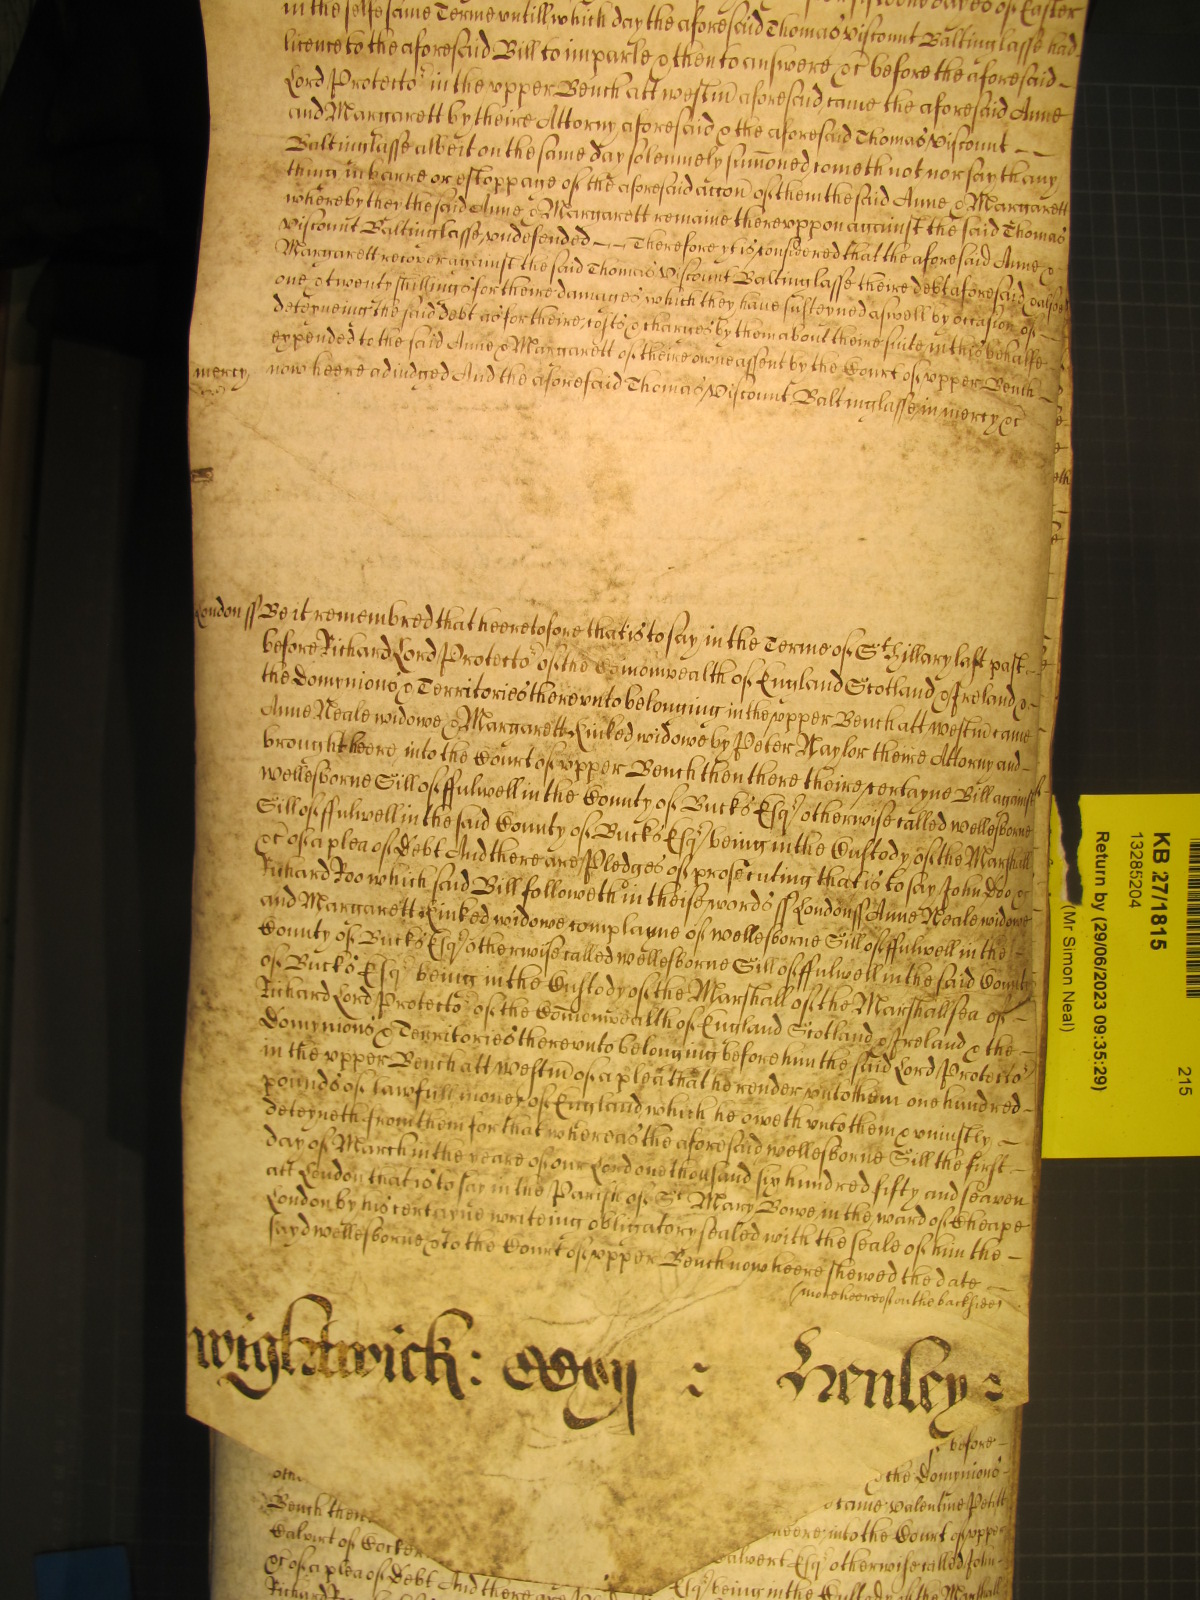 dayes of Easter
in the selfe same Terme untill which day the aforesaid Thomas Viscount Baltinglasse had
licence to the aforesaid Bill to imparle & then to answere &c before the aforesaid
Lord Protector in the upper Bench att westm aforesaid came the aforesaid Anne
and Margarett by theire Attorny aforesaid & the aforesaid Thomas Viscount
Baltinglasse albeit on the same day solemnely sumoned cometh not nor say th any
thing in barre or estoppage of the aforesaid accon of them the said Anne & Margarett
whereby they the said Anne & Margarett remaine thereuppon against the said Thomas
Viscount Baltinglasse undefended Therefore yt is considered that the aforesaid Anne &
Margarett recover against the said Thomas Viscount Baltinglasse theire debt aforesaid & alsoe
one & twenty shillings for theire damages which they have susteyned aswell by occasion of
deteyneing the said debt as for theire costs & charges by them about theire suite in this behalfe
expended to the said Anne & Margarett of theire owne assent by the Court of upper Bench
mercy now heere adiudged And the aforesaid Thomas Viscount Baltinglasse in mercy &c
London ss Be it remembred that heeretofore that is to say in the Terme of St Hillary last past
before Richard Lord Protector of the Comonwealth of England Scotland & Ireland &
the Dominions & Territories thereunto belonging in the upper Bench att westm came
Anne Neale widowe & Margarett Kinked widowe by Peter Naylor theire Attorny and
brought heere into the Court of upper Bench then there theire certayne Bill against
Wellesborne Sill of ffulwell in the County of Bucks Esqr otherwise called Wellesborne
Sill of ffulwell in the said County of Bucks Esqr being in the Custody of the Marshall
&c of a plea of Debt And there are Pledges of prosecuting that is to say John Doo &
Richard Roo which said Bill followeth in theise words ss London ss Anne Neale widowe
and Margarett Kinked widowe complayne of Wellesborne Sill of ffulwell in the
County of Bucks Esqr otherwise called Wellesborne Sill of ffulwell in the said County
of Bucks Esqr being in the Custody of the Marshall of the Marshallsea of
Richard Lord Protector of the Comonwealth of England Scotland & Ireland & the
Domynions & Territories thereunto belonging before him the said Lord Protector
in the upper Bench att Westm of a plea that he render unto them one hundred
pounds of lawfull money of England which he oweth unto them & uniustly
deteyneth from them for that whereas the aforesaid Wellesborne Sill the first
day of March in the yeare of our Lord one thousand six hundred fifty and seaven
att London that is to say in the Parish of St Mary Bowe in the ward of Cheape
London by his certayne writeing obligatory sealed with the seale of him the
sayd Wellesborne & to the Court of upper Bench now heere shewed the date
(more heereof on the backside)
Wightwick: :
Henley :
before
othe & the Dominions
Bench there came Valentine Petitt
Calvert of heere into the Court of upper
&c of a plea of Debt And there are Calvert Esqr otherwise called John
Richard Roo Esqr being in the Custody of the Marshall
KB 27/1815
13285204
Return by (29/06/2023 09:35:29)
(Mr Simon Neal)
215